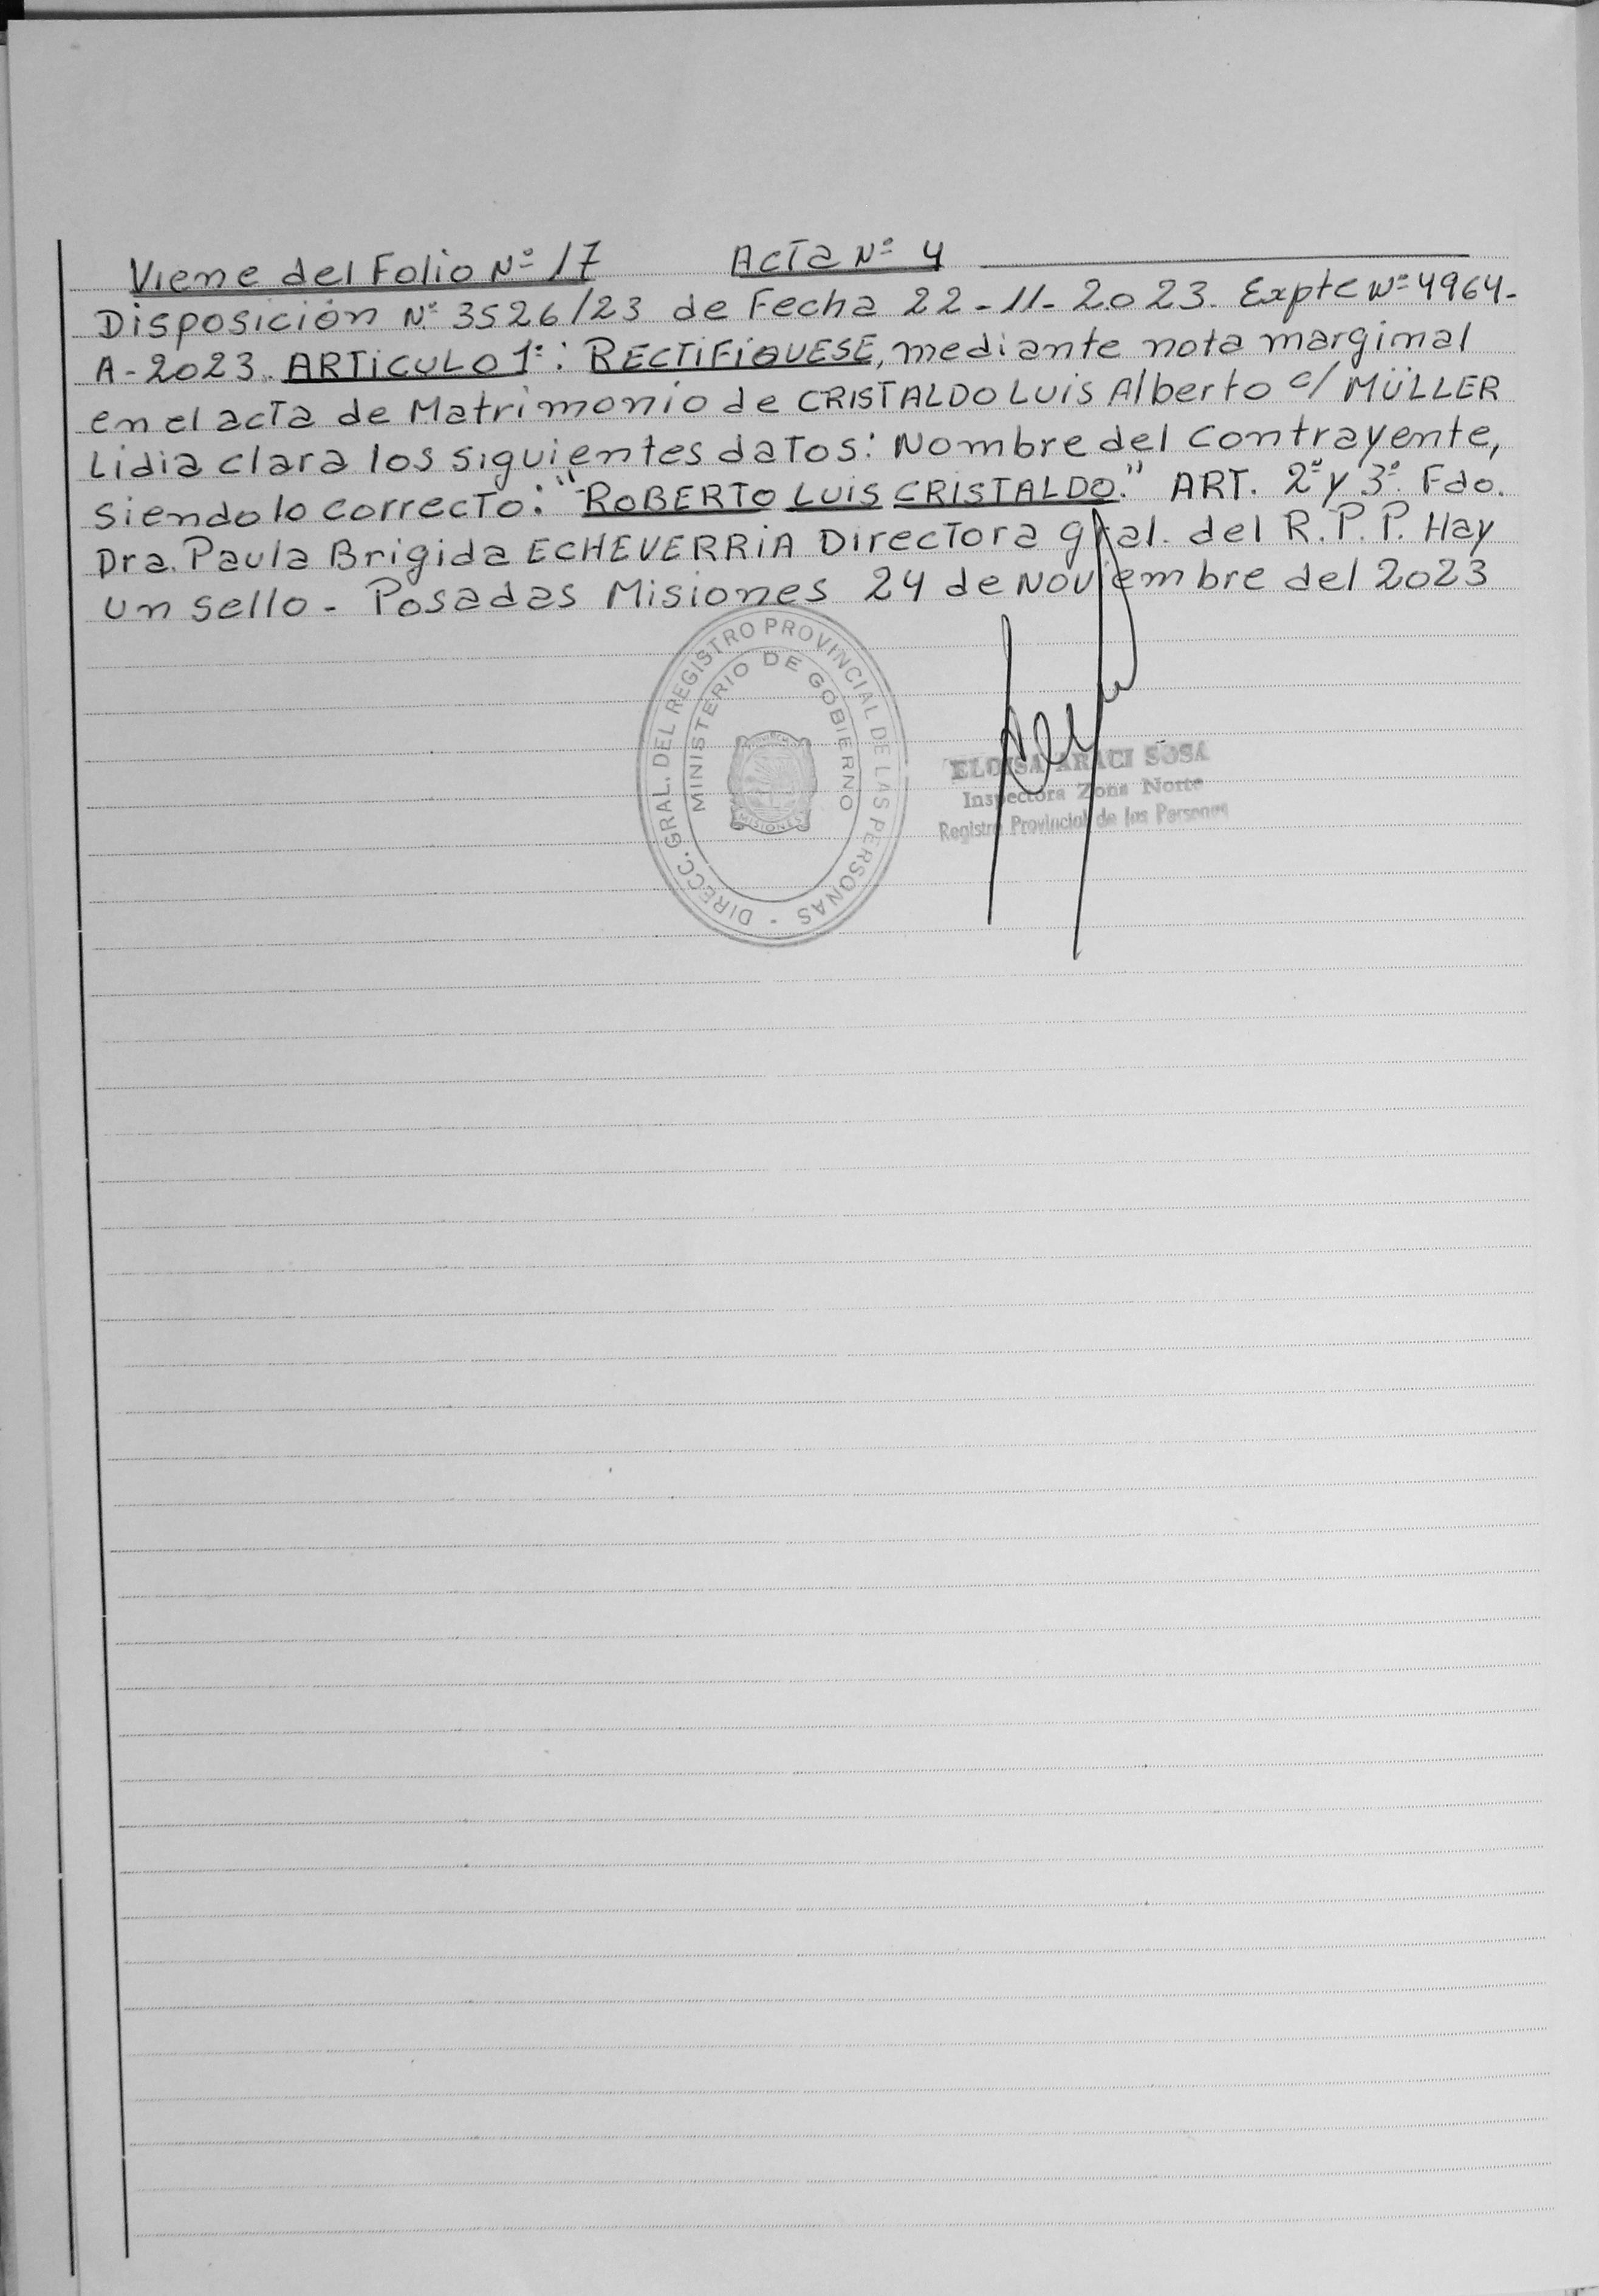 Viene del Folio Nº 17 Acta Nº 4
Disposición Nº 3526/23 de Fecha 22-11-2023. Expte Nº 4964-
A-2023. ARTICULO 1º: RECTIFIQUESE, mediante nota marginal
en el acta de Matrimonio de CRISTALDO LUIS Alberto c/ MÜLLER
Lidia clara los siguientes datos: Nombre del contrayente,
siendo lo correcto: "ROBERTO LUIS CRISTALDO." ART. 2º y 3º. Fdo.
Dra. Paula Brigida ECHEVERRIA Directora gral. del R.P.P. Hay
un sello - Posadas Misiones 24 de Noviembre del 2023
DIRECC. GRAL. DEL REGISTRO PROVINCIAL DE LAS PERSONAS -
MINISTERIO DE GOBIERNO
MISIONES
ELOISA ARACI SOSA
Inspectora Zona Norte
Registro Provincial de las Personas